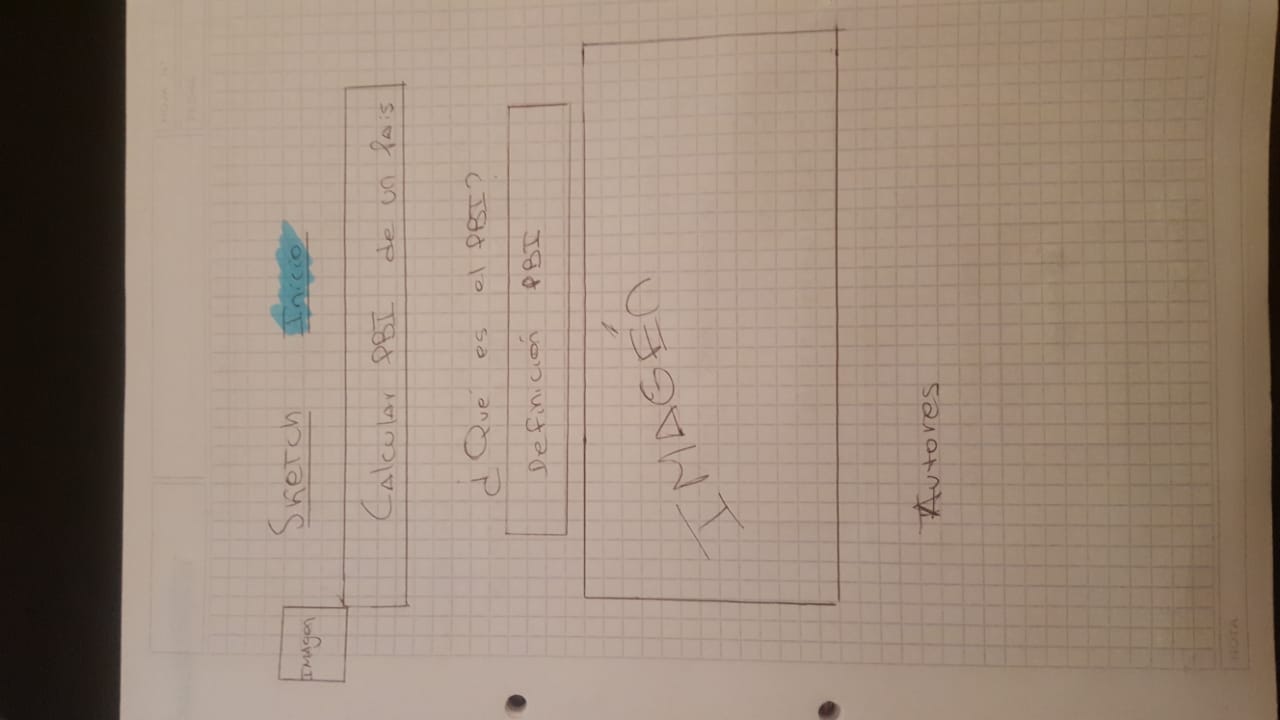 Sketch Inicio
IMAGEN
Calcular PBI de un País
¿Qué es el PBI?
Definición PBI
IMAGÉN
Autores
NOTA